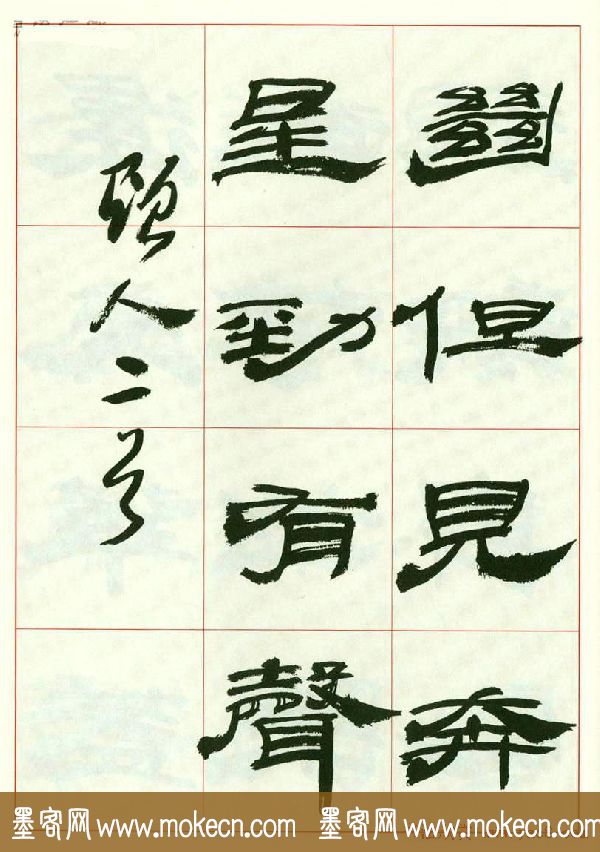 但見奔
星勁有聲
人二
墨客网 www.mokecn.com 墨客网 www.mokecn.com